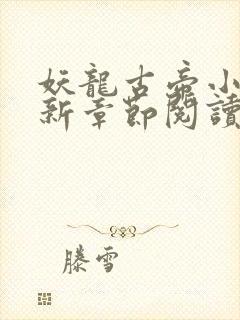 妖龍古帝小
新章節閱讀
滕雪